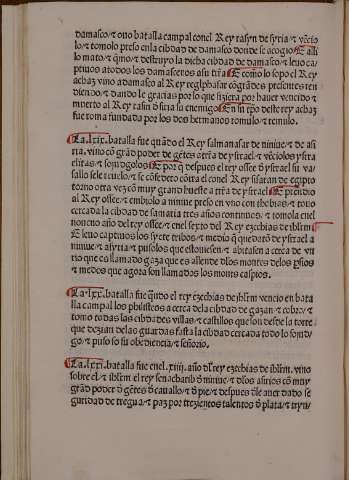 damasco/⁊ ouo batalla campal con el Rey rasyn de syria/⁊ vēcio
lo/⁊ tomolo preso en la cibdad de damasco donde se acogio⸿E alli
lo mato/⁊ q̄mo/⁊ destruyo la dicha cibdad de damasco/⁊ leuo ca/
ptiuos a todos los damascenos a su tr̄ra⸿E como lo sopo el Rey
achaz vino a damasco al Rey teglphasar cō grādes presentes ren
diendo/⁊ dando le gracias por lo que fiziera por hauer vencido ⁊
muerto al Rey rasin d̄ siria su enemigo⸿En su tp̄o deste rey achaz
fue roma fundada por los dos hermanos romulo/⁊ remulo.
⸿La.lxix.batalla fue quādo el Rey salmanasar de niniue/⁊ de asi
ria. vino cō grād poder de gētes cōtra d̄ ysrael/⁊ vēciolos ysra
elitas/⁊ somjdgolos⸿E por q̄ despues el rey osee d̄ ysrael fizo va
sallo se le reuelo/⁊ se cōfedero cō tra el con el Rey sisaran de egipto
torno otra vez cō muy grand hueste a tr̄ra de ysrael⸿E prendio
al Rey osee/⁊ embiolo a niniue preso en vno con thobias/⁊ touo
cercada la cibdad de samaria tres años continuos/⁊ tomola en el
noueno año del rey osee/⁊ en el sexto del Rey ezechias de ihr̄lm
E leuo captiuos los syete tribos/⁊ medio q̄ quedarō de ysrael a
niniue ⁊ asyria/⁊ pusolos que estouiesen/⁊ abitasen a cerca de vn
rio que es llamado gaza que es allende d̄ los montes delos p̄sios
⁊ medos que agora son llamados los monts caspios.
⸿La.lxx.batalla fue q̄ndo el rey ezechias de ihr̄lm vencio en bata
lla campal los phīlisteos a cerca dela cibdad de gazan/⁊ cobro/⁊
tomo todas las cibdades villas/⁊ castillos que son desde la torre
que dezian delas guardas fasta la cibdad cercada todo lo somjd/
go/⁊ puso so su obediencia/⁊ señorio.
⸿La.lxxi.batalla fue en el.xiiij. año d̄l rey ezechias de ihr̄lm. vino
sobre el/⁊ ihr̄lm el rey senacharib d̄ niniue/⁊ d̄los asirios cō muy
grād poder d̄ gētes d̄ cauallo/⁊ d̄ pie/⁊ despues d̄ le auer dado se
guridad de tregua/⁊ paz por trezientos talentos d̄ plata/⁊ tryn/